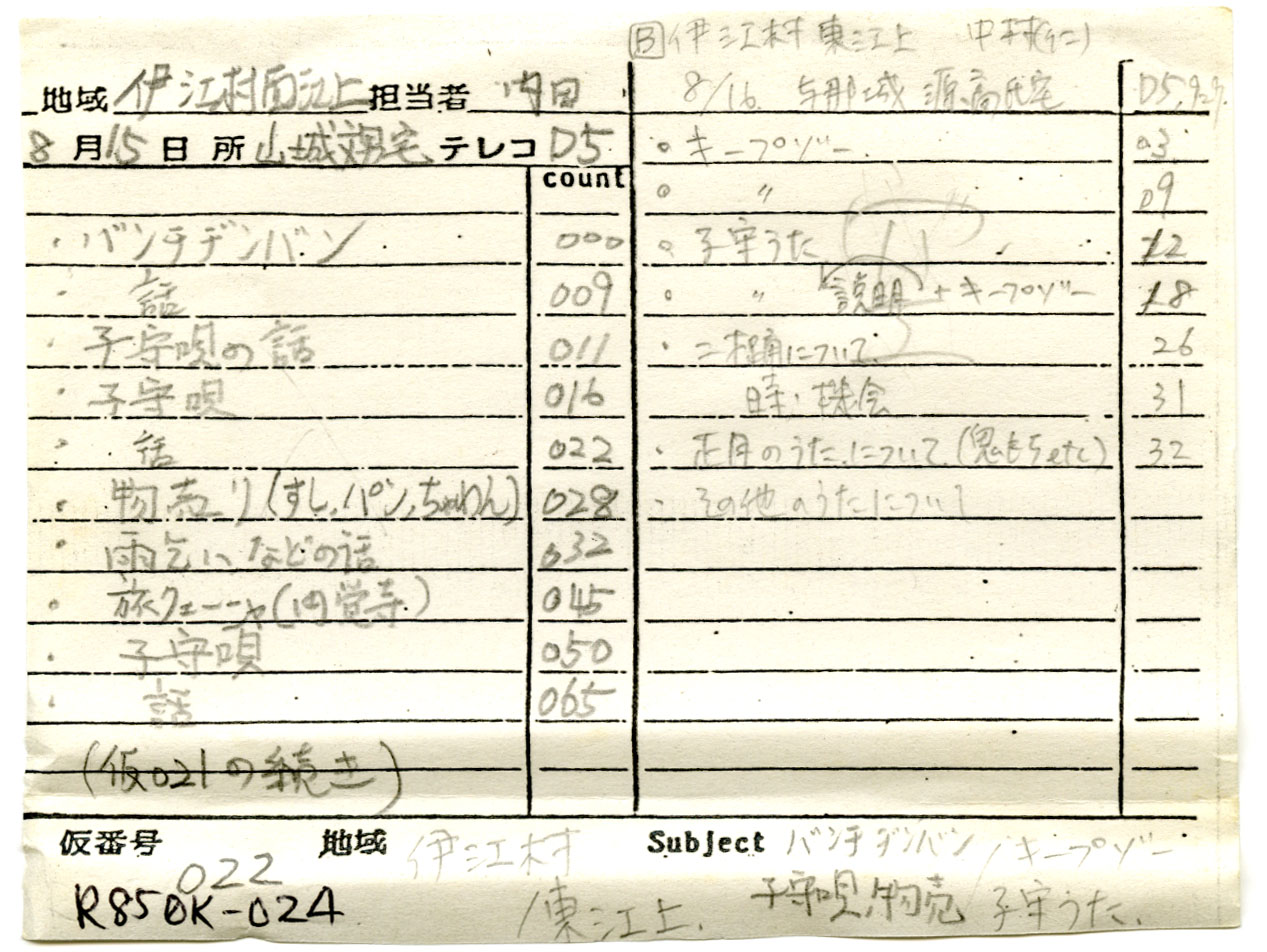 地域 伊江村西江上 担当者 内田
8月15日 所 山城 宅 テレコ D5
count
・バンチデンバン 000
・話 009
・子守唄の話 011
・子守唄 016
・話 022
・物売り(すし,パン,ちゃわん) 028
・雨乞いなどの話 032
・旅クェーニャ(円覚寺) 045
・子守唄 050
・話 065
(仮021の続き)
B 伊江村 東江上 中村(仁)
8/16 与那城 源高氏宅 D5,
○キープゾー 03
○〃 09
○子守うた 12
○〃 説明+キープゾー 18
・について 26
時・機会 31
・正月のうたについて(鬼もちetc) 32
・その他のうたについて
仮番号 022
R850K-024
地域 伊江村
/東江上.
Subject バンチデンバン/キープゾー
子守唄,物売 子守うた.